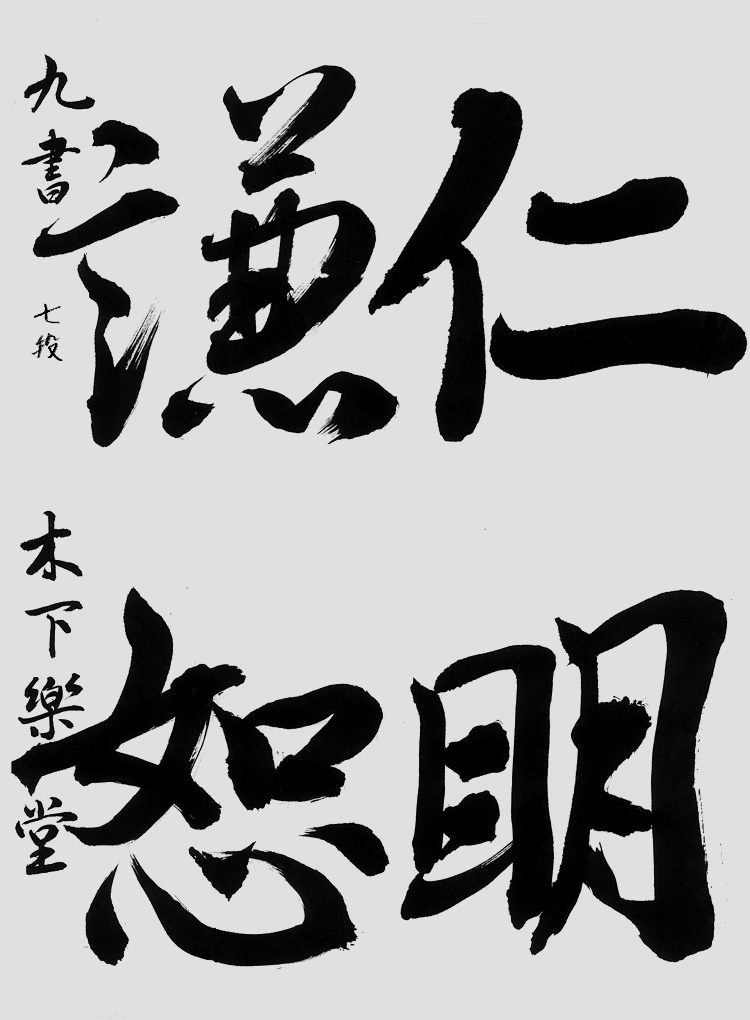 仁明
謙恕
九書 七段 木下樂堂